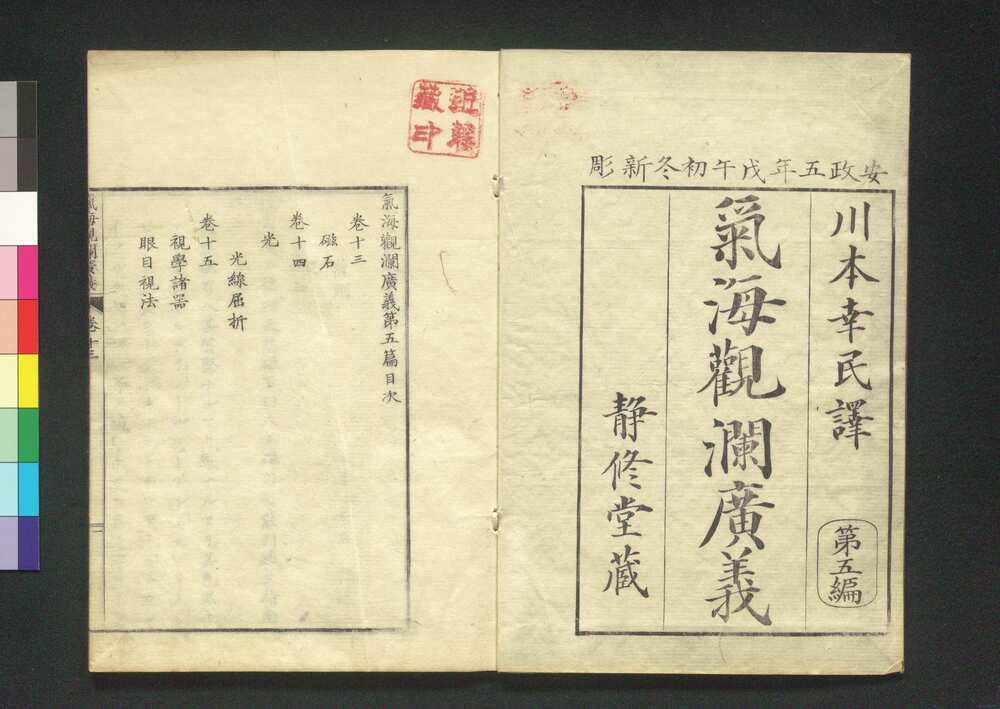 安政五年戊午初冬新彫
川本幸民譯
第五編
氣海觀瀾廣義
靜修堂蔵
藏印
氣海觀瀾廣義第五篇目次
卷十三
磁石
卷十四
光
光線屈折
卷十五
視學諸器
眼目視法
氣海觀瀾廣義
卷十三
一